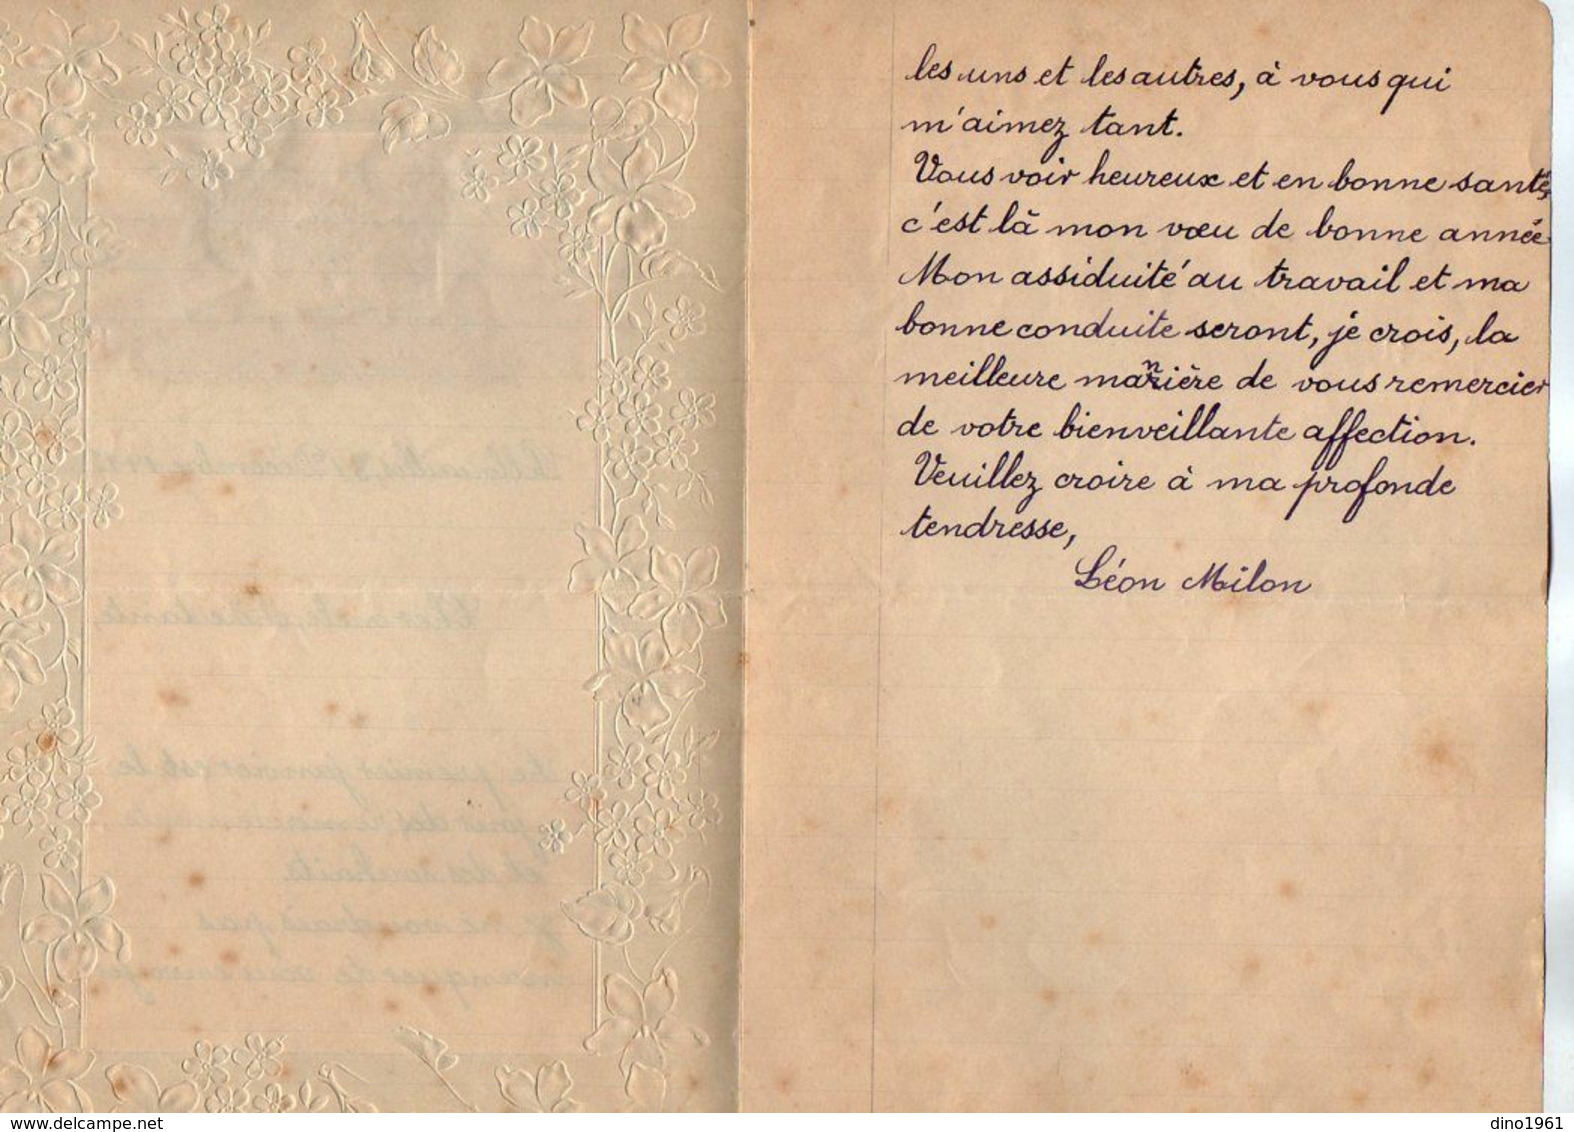 les uns et les autres, à vous qui
m'aimez tant.
Vous voir heureux et en bonne santé,
c'est là mon vœu de bonne année.
Mon assiduité au travail et ma
bonne conduite seront, je crois, la
meilleure manière de vous remercier
de votre bienveillante affection.
Veuillez croire à ma profonde
tendresse,
Léon Milon
www.delcampe.net
dino1961